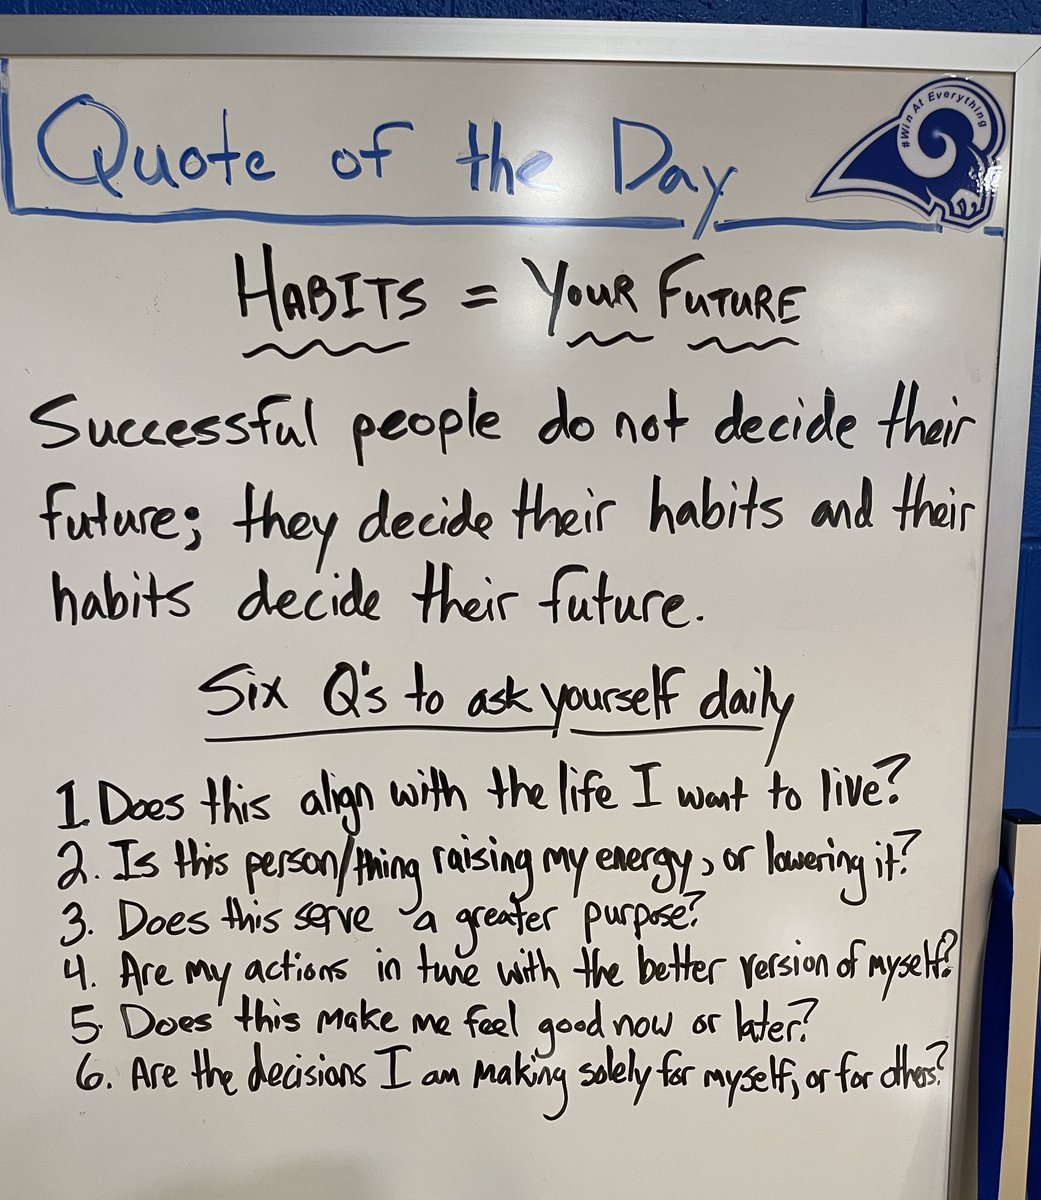 Quote of the Day
#Win At Everything
HABITS = YOUR FUTURE
Successful people do not decide their
future; they decide their habits and their
habits decide their future.
Six Q's to ask yourself daily
1. Does this align with the life I want to live?
2. Is this person/thing raising my energy, or lowering it?
3. Does this serve a greater purpose?
4. Are my actions in tune with the better version of myself?
5. Does this make me feel good now or later?
6. Are the decisions I am making solely for myself, or for others?